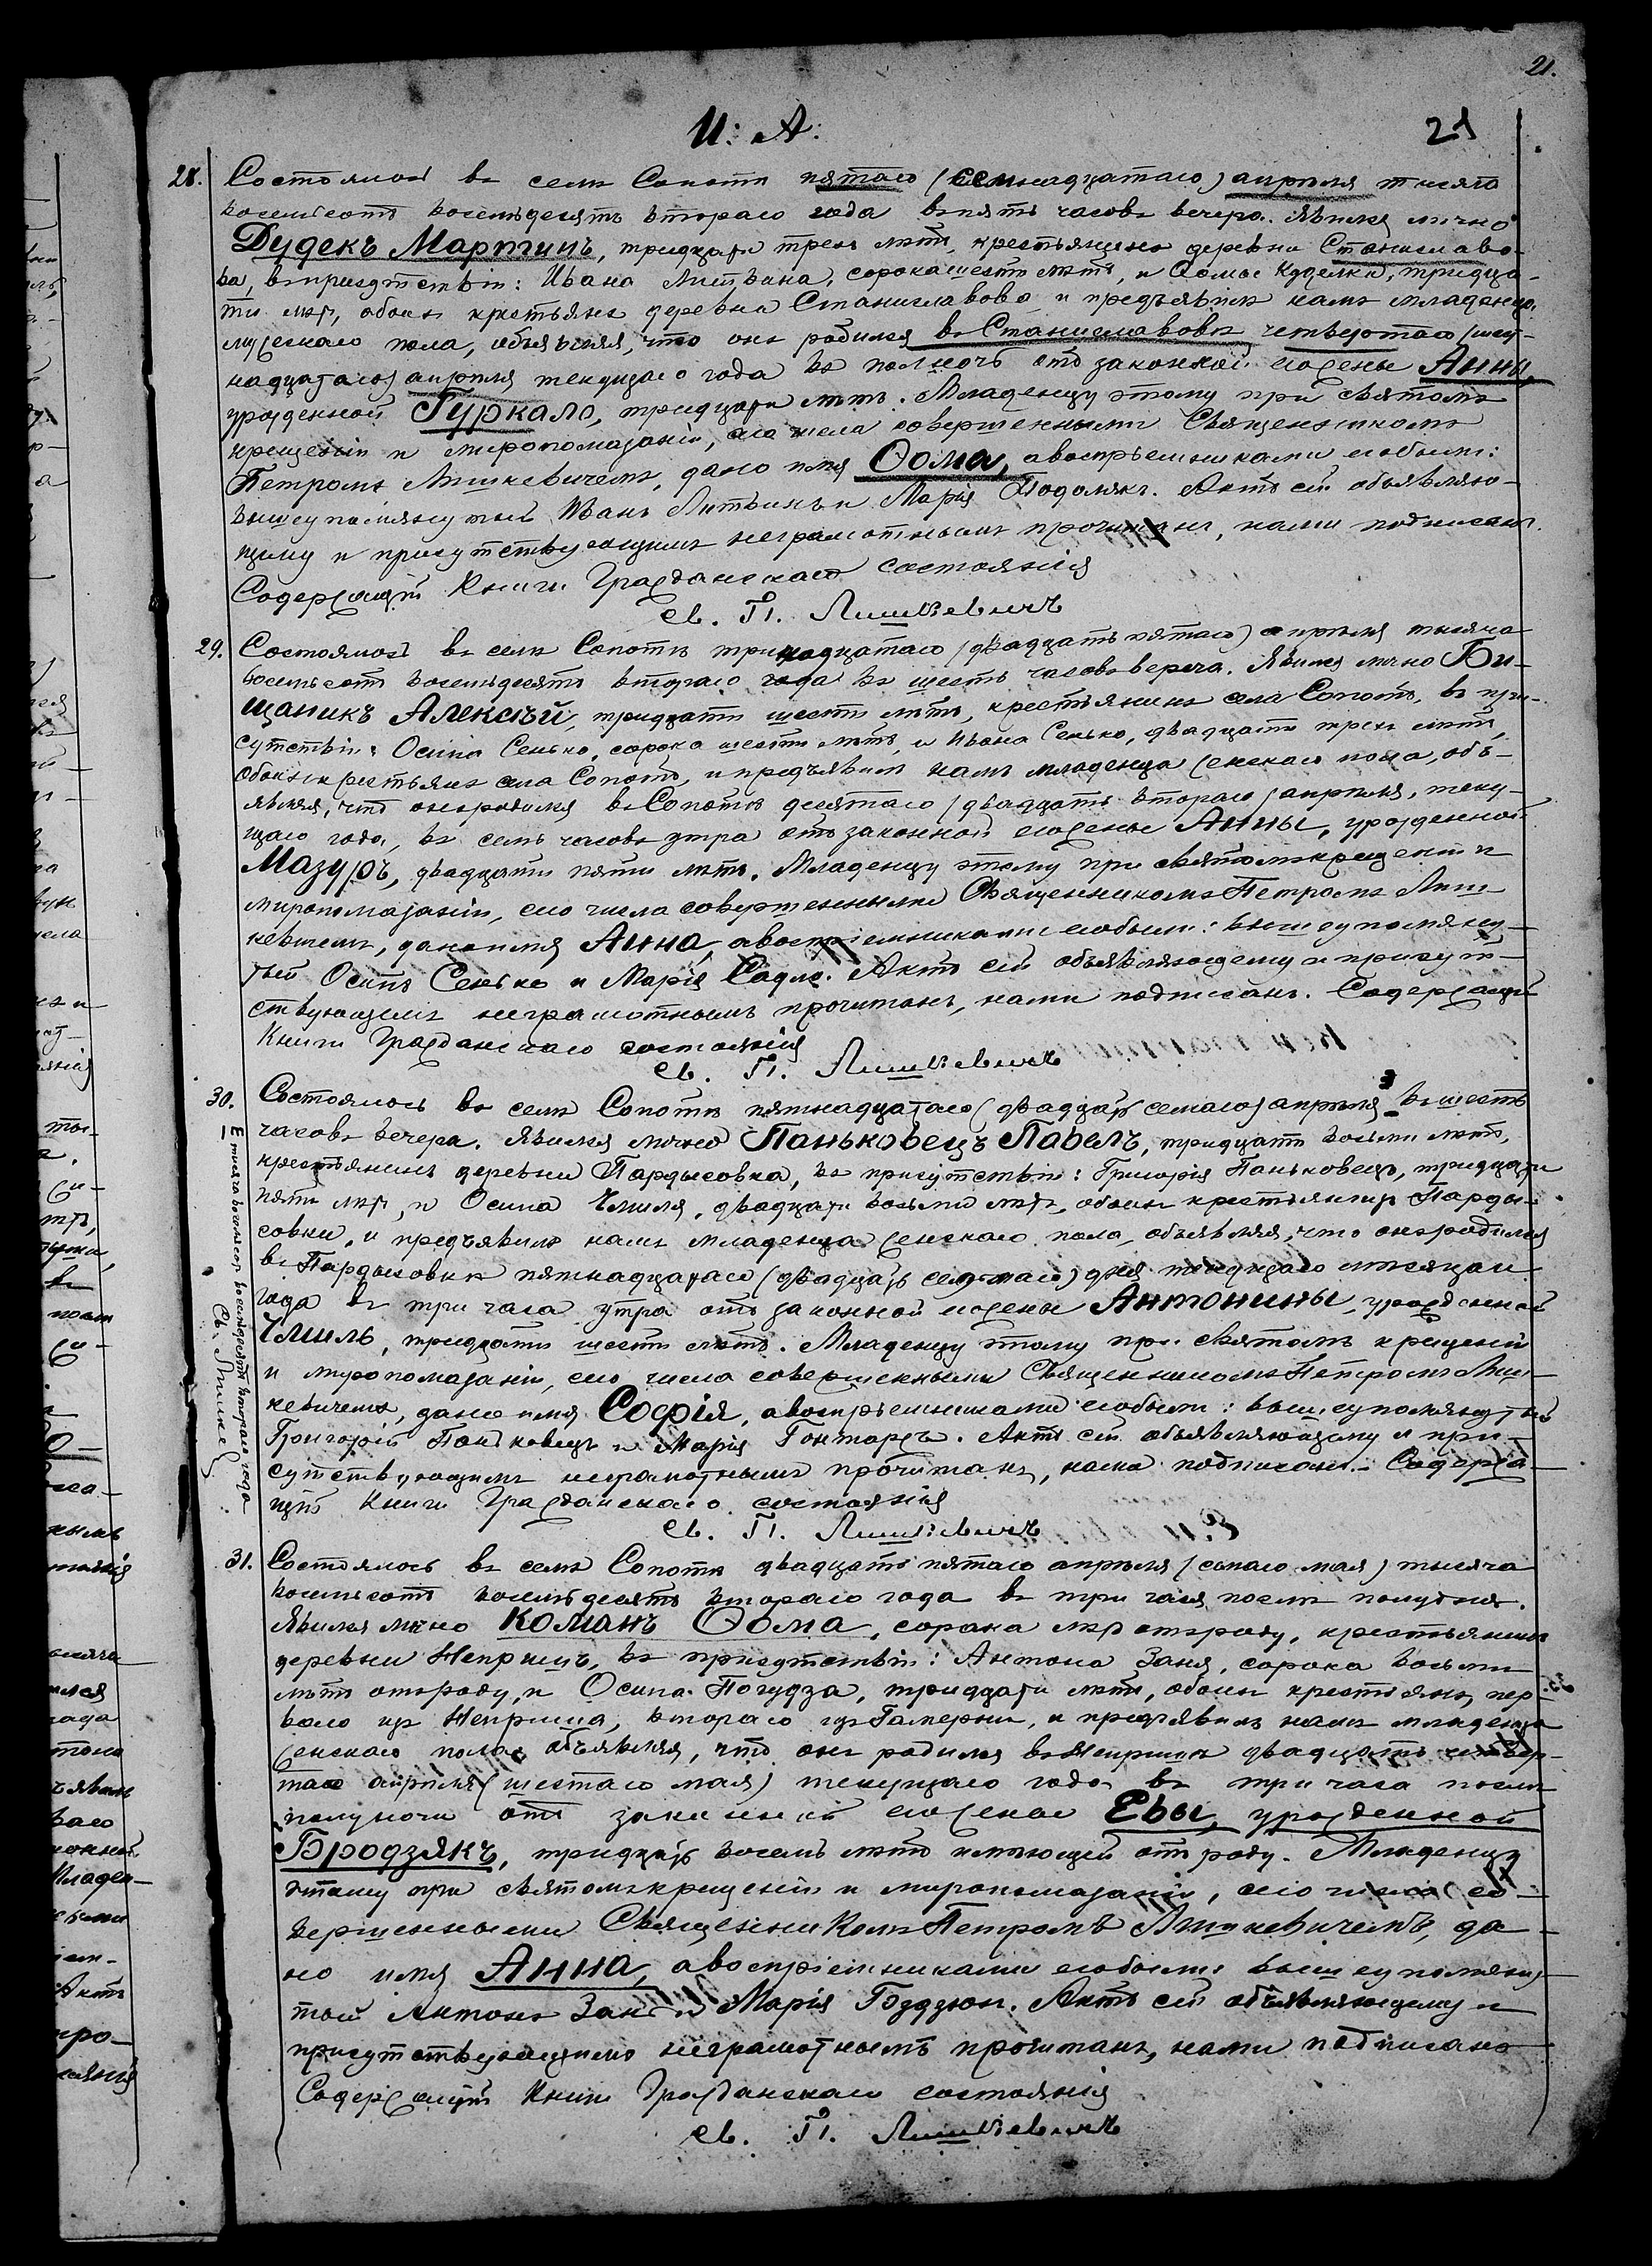 21.
И: А:
21
28. Состоялось въ селѣ Сопотѣ пятаго (семнадцатаго) апрѣля тысяча
восемьсотъ восемьдесятъ втораго года въ пять часовъ вечера. Явился лично
Дудекъ Мартинъ, тридцати трехъ лѣтъ, крестьянинъ деревни Станиславо-
ва, въ присутствіи: Ивана Литвина, сорока шести лѣтъ, и Ѳомы Куделки, тридца-
ти лѣтъ, обоихъ крестьянъ деревни Станиславова и предъявилъ намъ младенца
мужескаго пола, объявляя, что онъ родился въ Станиславовѣ четвертаго (шест-
надцатаго) апрѣля текущаго года въ полночь отъ законной его жены Анны,
урожденной Гуркало, тридцати лѣтъ. Младенцу этому при святомъ
крещеніи и мѵропомазаніи, сего числа совершенными Священникомъ
Петромъ Лишкевичемъ, дано имя Ѳома, а воспріемниками его были:
вышеупомянутый Иванъ Литвинъ и Марія Подолякъ. Актъ сей объявляю-
щему и присутствующимъ неграмотнымъ прочитанъ, нами подписанъ.
Содержащій Книги Гражданскаго состоянія
Св. П. Лишкевичъ
29. Состоялось въ селѣ Сопотѣ тринадцатаго (двадцать пятаго) апрѣля тысяча
восемьсотъ восемьдесятъ втораго года въ шесть часовъ вечера. Явился лично Би-
щаникъ Алексѣй, тридцати шести лѣтъ, крестьянинъ села Сопотъ, въ при-
сутствіи: Осипа Сенько, сорока шести лѣтъ, и Ивана Сенько, двадцати трехъ лѣтъ,
обоихъ крестьянъ села Сопотъ, и предъявилъ намъ младенца женскаго пола, объ-
являя, что онъ родился въ Сопотѣ десятаго (двадцать втораго) апрѣля, теку-
щаго года, въ семь часовъ утра отъ законной его жены Анны, урожденной
Мазуръ, двадцати пяти лѣтъ. Младенцу этому при святомъ крещеніи и
мѵропомазаніи, сего числа совершенными Священникомъ Петромъ Лиш-
кевичемъ, дано имя Анна, а воспріемниками его были: вышеупомяну-
тый Осипъ Сенько и Марія Садло. Актъ сей объявляющему и присут-
ствующимъ неграмотнымъ прочитанъ, нами подписанъ. Содержащій
Книги Гражданскаго состоянія
Св. П. Лишкевичъ
30. Состоялось въ селѣ Сопотѣ пятнадцатаго (двадцать седьмаго) апрѣля въ шесть
часовъ вечера. Явился лично Паньковецъ Павелъ, тридцати восьми лѣтъ,
крестьянинъ деревни Пардысовка, въ присутствіи: Григорія Паньковецъ, тридцати
пяти лѣтъ, и Осипа Чмиля, двадцати восьми лѣтъ, обоихъ крестьянъ изъ Парды-
совки, и предъявилъ намъ младенца женскаго пола, объявляя, что онъ родился
въ Пардысовкѣ пятнадцатаго (двадцать седьмаго) дня текущаго мѣсяца и
года въ три часа утра отъ законной его жены Антонины, урожденной
Чмиль, тридцати шести лѣтъ. Младенцу этому при святомъ крещеніи
и мѵропомазаніи, сего числа совершенными Священникомъ Петромъ Лиш-
кевичемъ, дано имя Софія, а воспріемниками его были: вышеупомянутый
Григорій Паньковецъ и Марія Гонтаржъ. Актъ сей объявляющему и при-
сутствующимъ неграмотнымъ прочитанъ, нами подписанъ. Содержа-
щій Книги Гражданскаго состоянія
Св. П. Лишкевичъ
тысяча восемьсотъ восемьдесятъ втораго года
Св. Лишкев
31. Состоялось въ селѣ Сопотѣ двадцать пятаго апрѣля (седьмаго мая) тысяча
восемьсотъ восемьдесятъ втораго года въ три часа послѣ полудня.
Явился лично Команъ Ѳома, сорока лѣтъ отъ роду, крестьянинъ
деревни Непришъ, въ присутствіи: Антона Заня, сорока восьми
лѣтъ отъ роду, и Осипа Погудза, тридцати лѣтъ, обоихъ крестьянъ, пер-
ваго изъ Неприша, втораго изъ Гамерни, и предъявилъ намъ младенца
женскаго пола, объявляя, что онъ родился въ Непришѣ двадцать четвер-
таго апрѣля (шестаго мая) текущаго года въ три часа послѣ
полуночи отъ законной его жены Евы, урожденной
Бродзякъ, тридцать восемь лѣтъ имѣющей отъ роду. Младенцу
этому при святомъ крещеніи и мѵропомазаніи, сего числа со-
вершенными Священникомъ Петромъ Лишкевичемъ, да-
но имя Анна, а воспріемниками его были: вышеупомяну-
тый Антонъ Зань и Марія Гаддзюнъ. Актъ сей объявляющему и
присутствующимъ неграмотнымъ прочитанъ, нами подписанъ
Содержащій Книги Гражданскаго состоянія
Св. П. Лишкевичъ